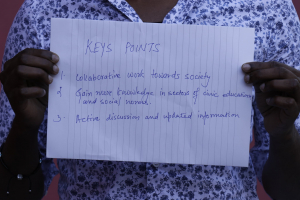 KEYS POINTS
1. Collaborative work towards society
2. Gain more knowledge in sectors of civic education
and social
3. Active discussion and updated information